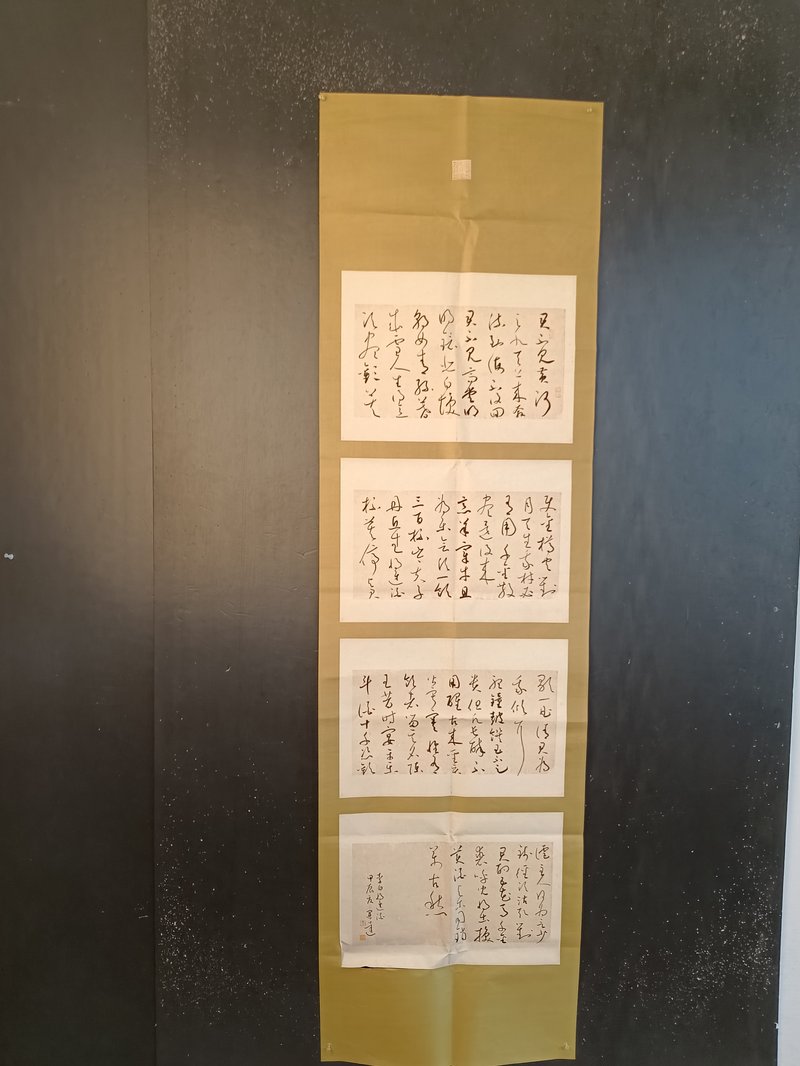 君不見黃河
之水天上來奔
流到海不復回
君不見高堂明
鏡悲白髮
朝如青絲暮
成雪人生得意
須盡歡莫
使金樽空對
月天生我材必
有用千金散
盡還復來
烹羊宰牛且
為樂會須一飲
三百杯岑夫子
丹丘生將進酒
杯莫停與君
歌一曲請君為
我傾耳
鐘鼓饌玉不足
貴但願長醉不
用醒古來聖賢
皆寂寞惟有
飲者留其名陳
王昔時宴平樂
斗酒十千恣歡
謔主人何為言少
錢徑須沽取對
君酌五花馬千金
裘呼兒將出換
美酒與爾同銷
萬古愁
李白將進酒
甲辰夏